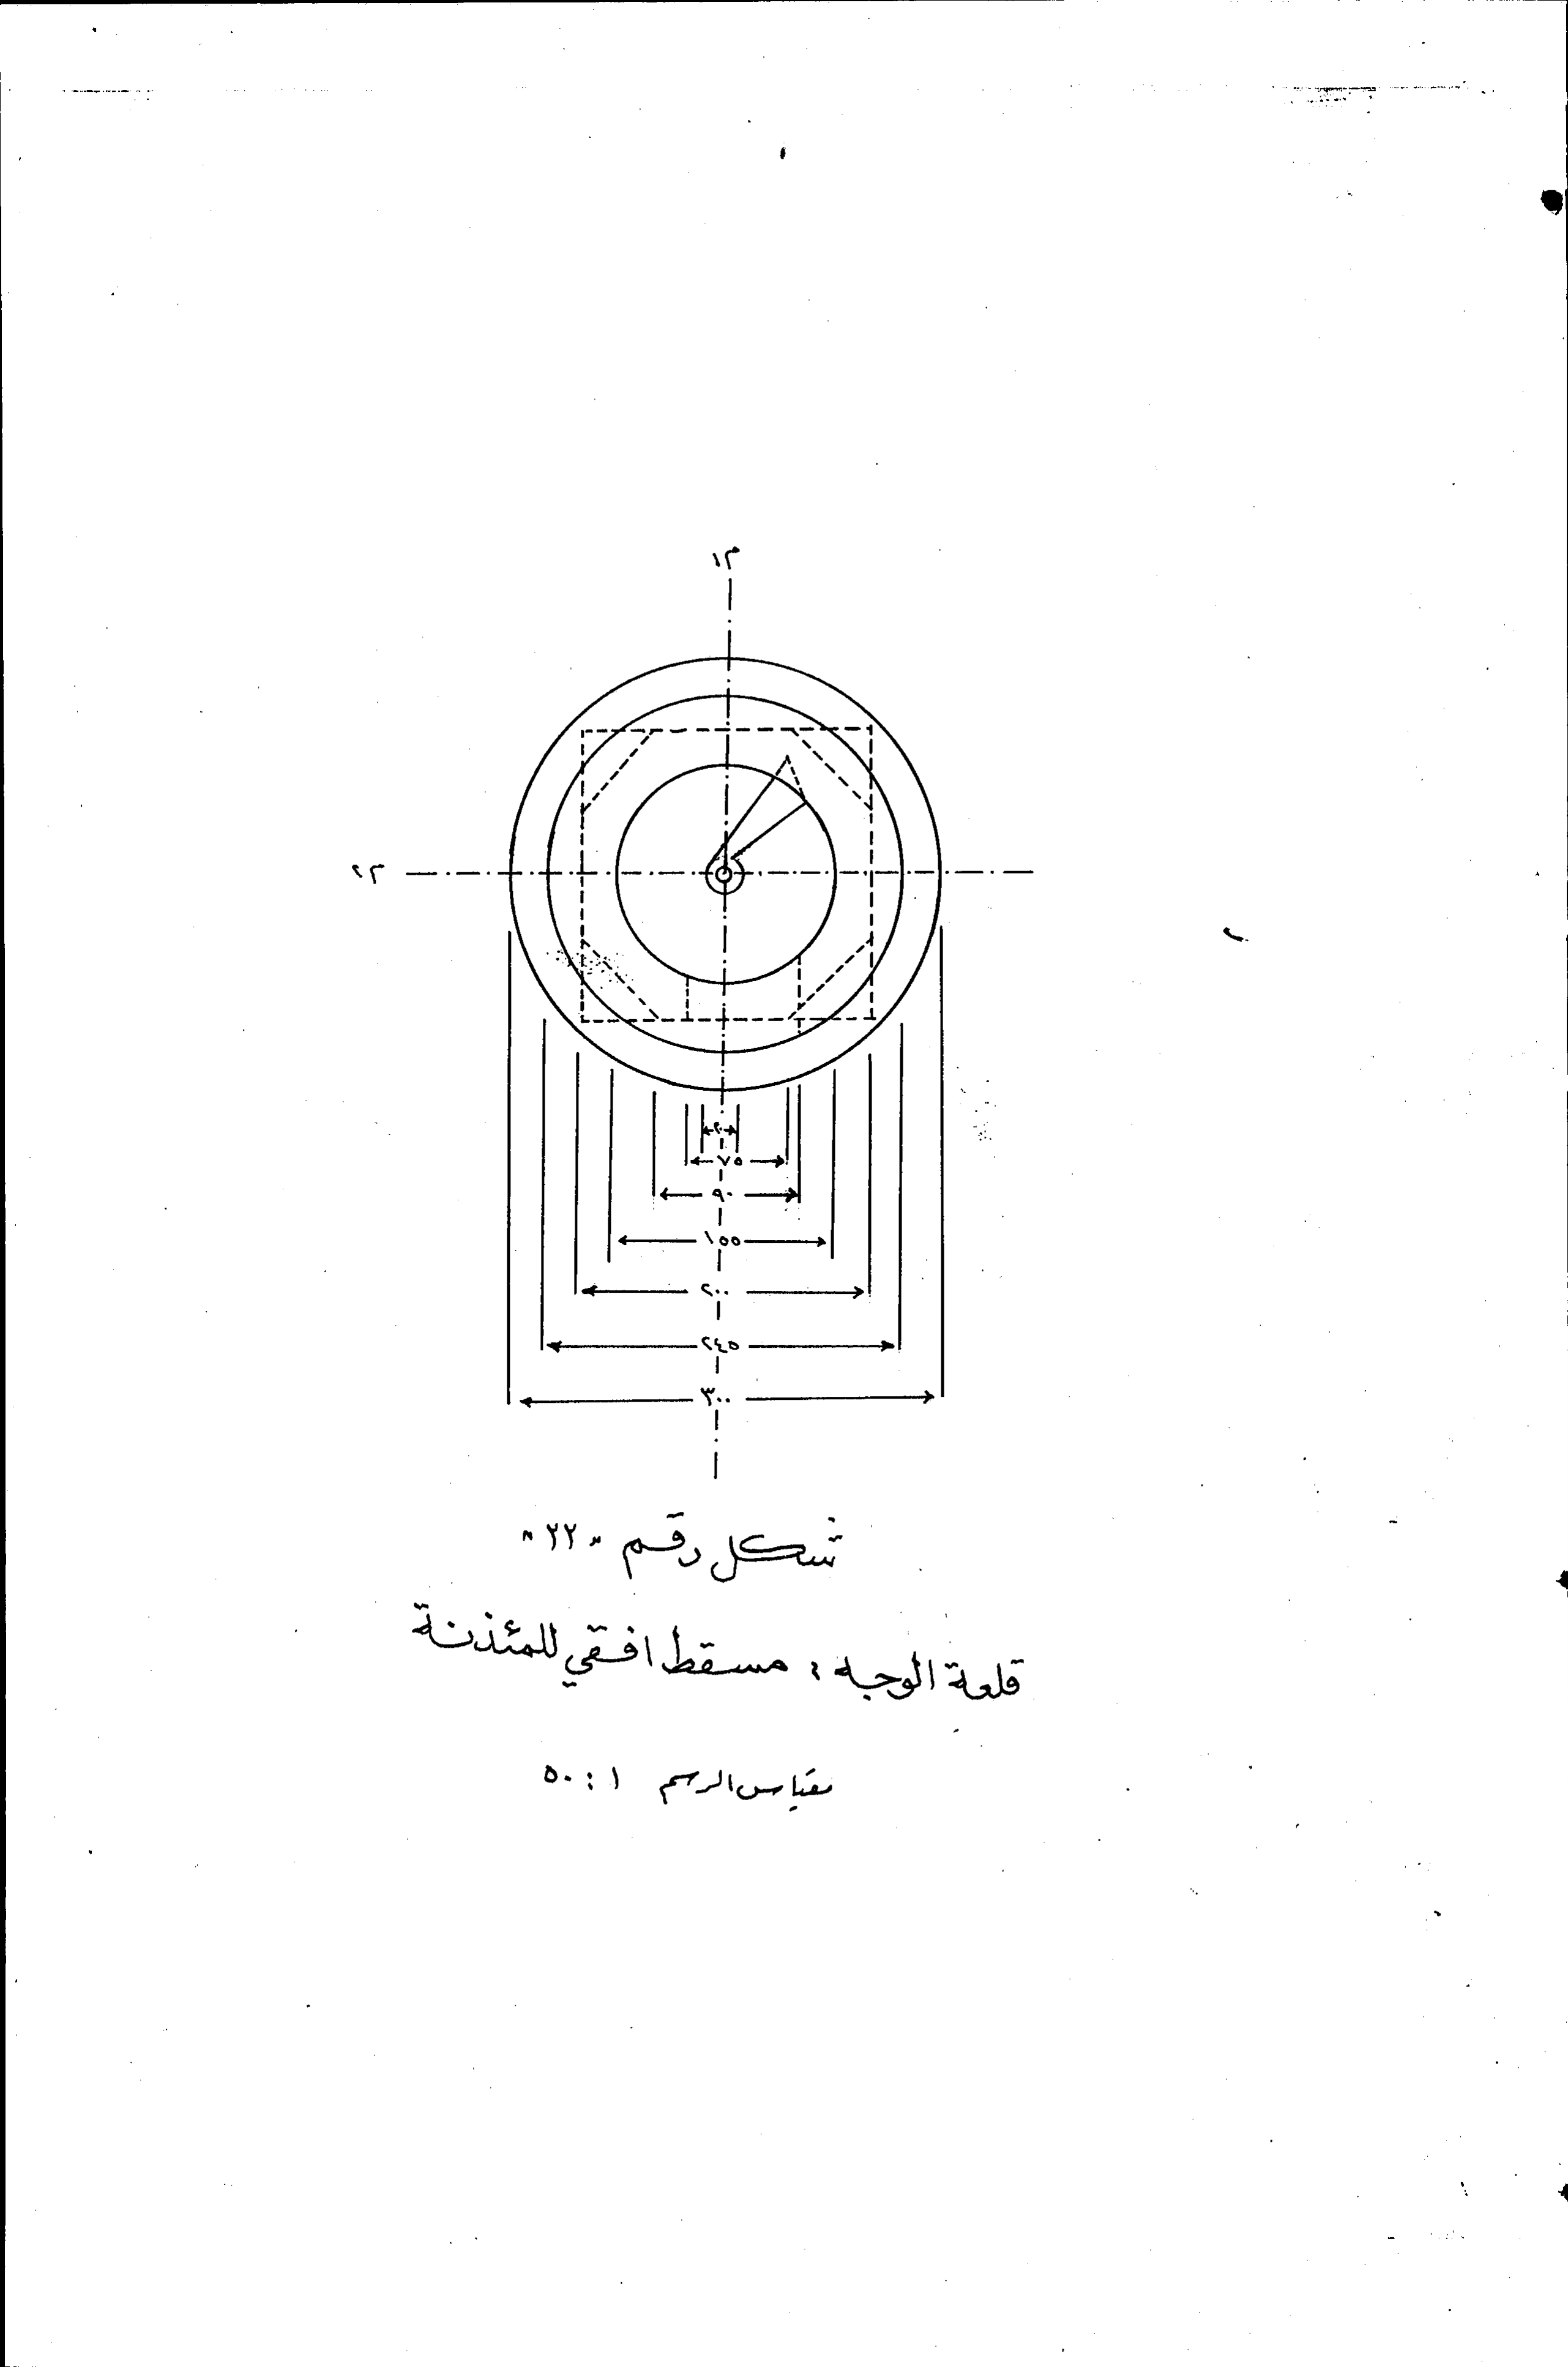 م١
م٢
٢٠
٧٥
٩٠
١٥٥
٢٠٠
٢٤٥
٣٠٠
شكل رقم "٢٢"
قلعة الوجه : مسقط افقي للمئذنة
مقياس الرسم ١ : ٥٠